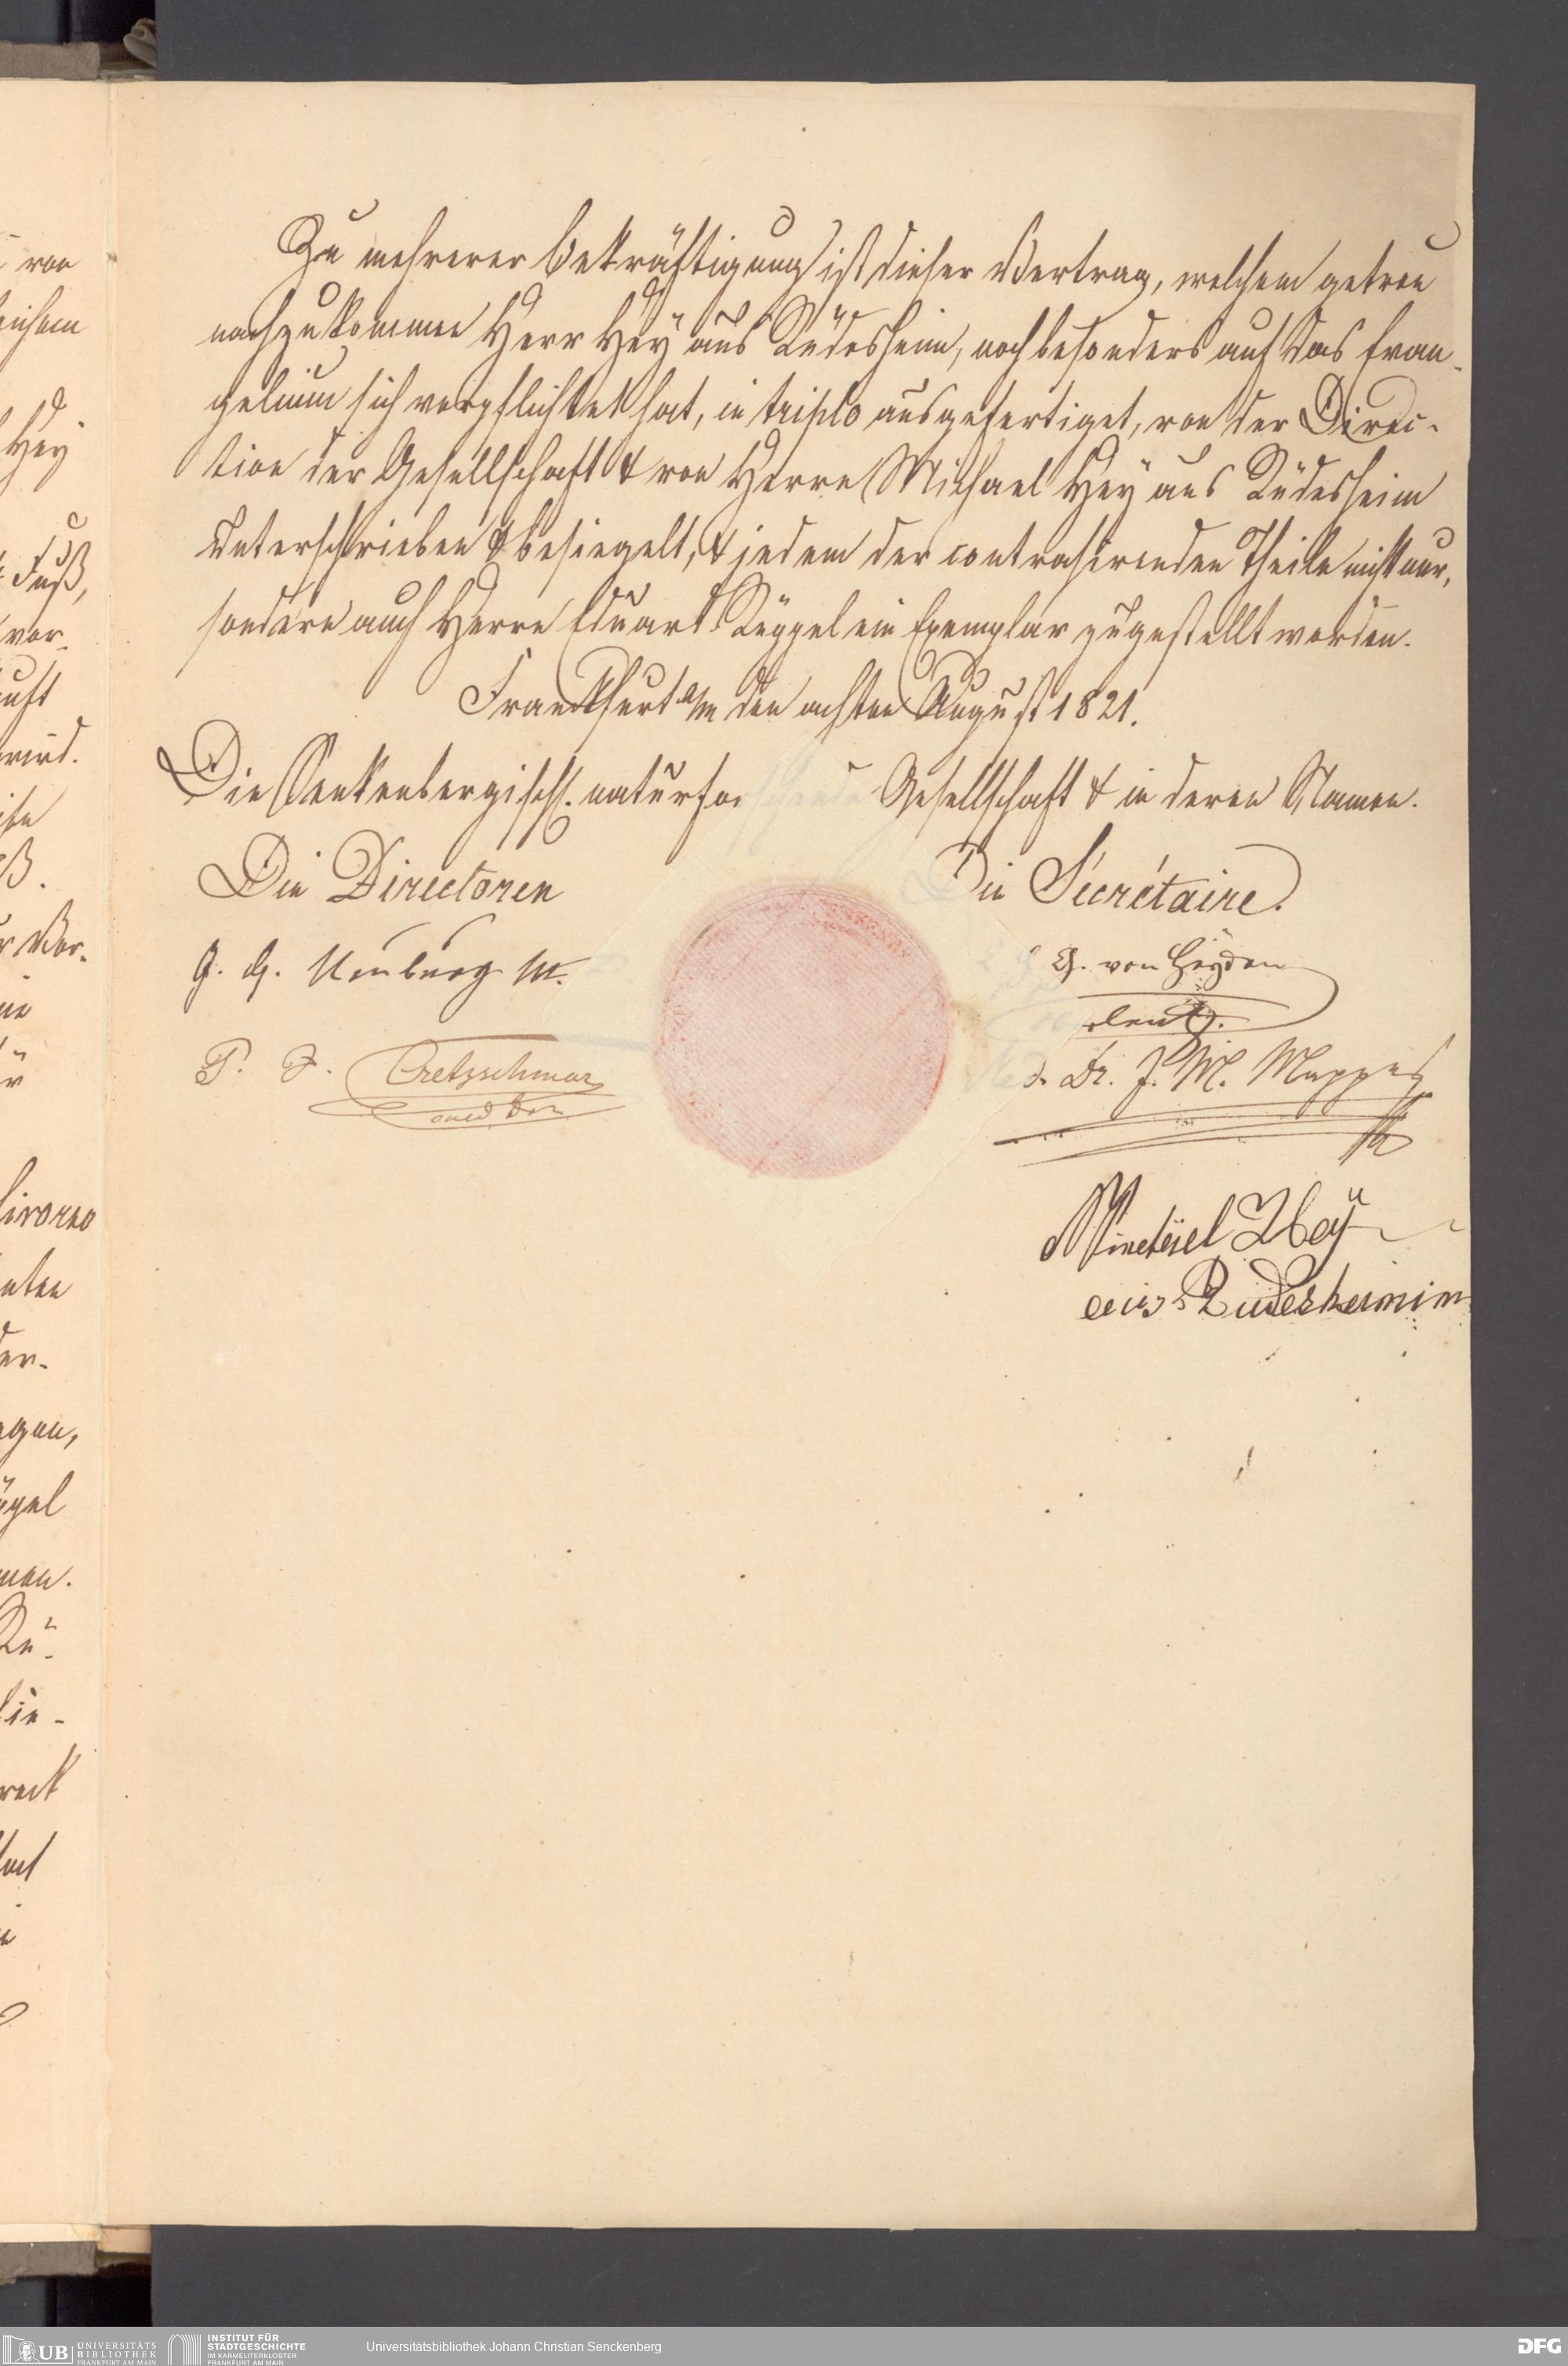 Zu mehrerer Bekräftigung ist dieser Vertrag, welchem getreu
nachzukommen Herr Hey aus Rüdesheim, noch besonders auf das Evan-
gelium sich verpflichtet hat, in triplo ausgefertiget, von der Direc-
tion der Gesellschaft & von Herrn Michael Hey aus Rüdesheim
unterschrieben & besiegelt, & jedem der contrahirenden Theile nicht nur,
sondern auch Herrn Eduard Rüppel ein Exemplar zugestellt worden.
Frankfurt a/m den achten August 1821.
Die Senkenbergisch. naturforschende Gesellschaft & in deren Namen.
Die Directoren
Die Sécrétaire.
J. G. Neuburg
C. von Heyden
P. J. Cretzschmar
med Dor
Dr. J. M. Mappes
Hey
Rudesheimim
von
Hey
Fuß,
vor-
wird.
Livorno
UB UNIVERSITÄTS BIBLIOTHEK FRANKFURT AM MAIN
INSTITUT FÜR STADTGESCHICHTE IM KARMELITERKLOSTER FRANKFURT AM MAIN
Universitätsbibliothek Johann Christian Senckenberg
DFG